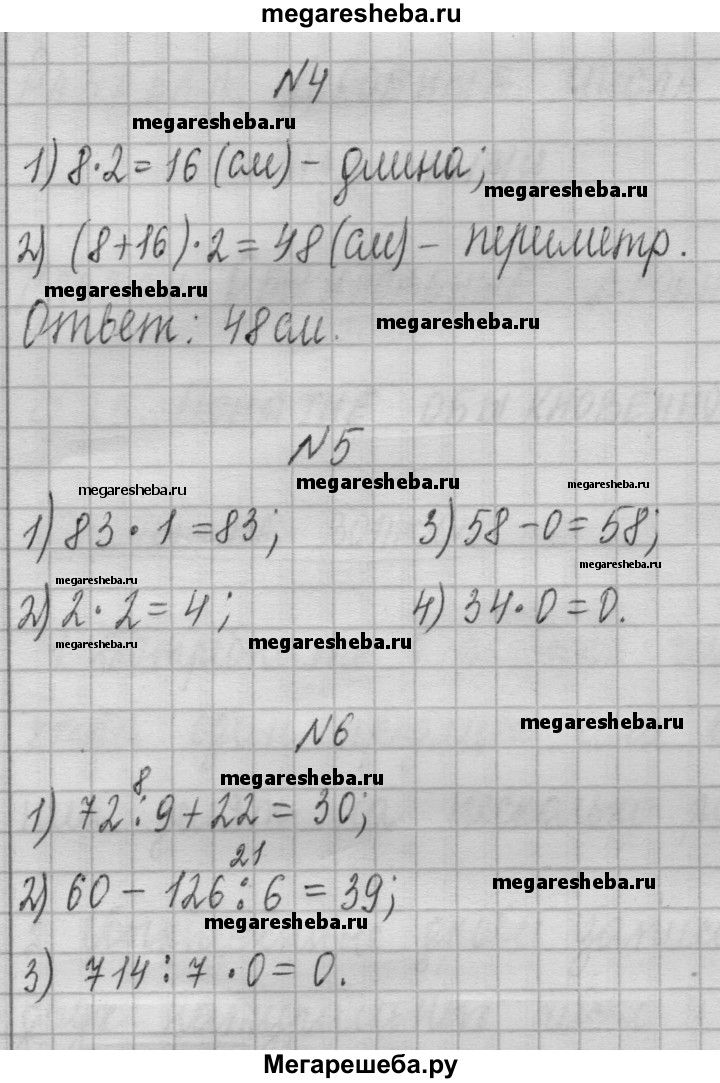 megaresheba.ru
№4
megaresheba.ru
1) 8·2=16 (см) - длина;
megaresheba.ru
2) (8+16)·2=48 (см) - периметр.
megaresheba.ru
Ответ: 48 см.
megaresheba.ru
№5
megaresheba.ru
megaresheba.ru
megaresheba.ru
1) 83·1=83; 3) 58-0=58;
megaresheba.ru
megaresheba.ru
2) 2·2=4; 4) 34·0=0.
megaresheba.ru
megaresheba.ru
№6
megaresheba.ru
8
megaresheba.ru
1) 72:9+22=30;
21
2) 60-126:6=39;
megaresheba.ru
megaresheba.ru
3) 714:7·0=0.
Мегарешеба.ру